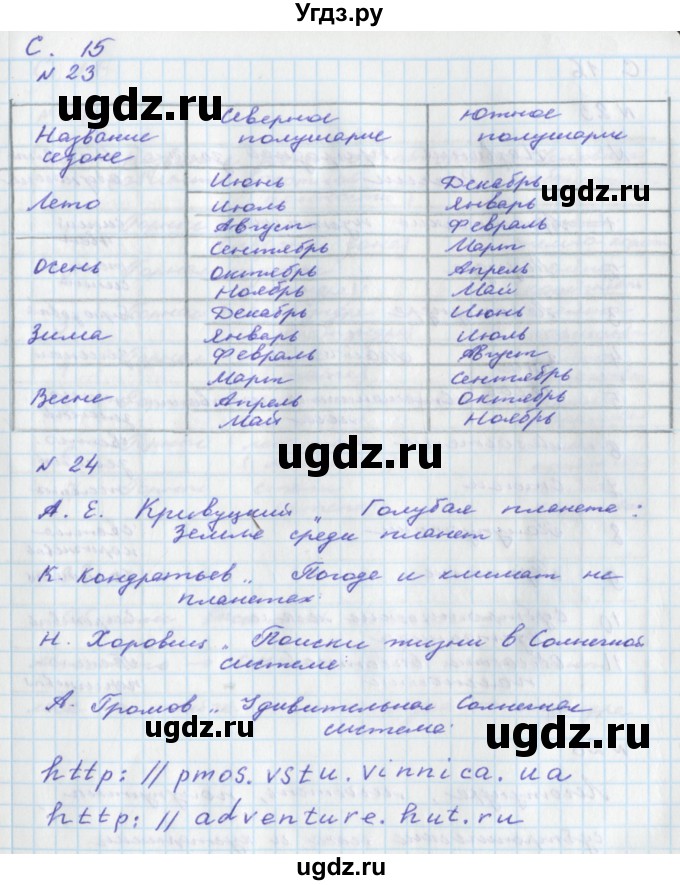 Угдз.ру
С. 15
№ 23
Название сезоне Северное полушарие Южное полушарие
Июнь Декабрь
Лето Июль Январь
Август Февраль
Сентябрь Март
Осень Октябрь Апрель
Ноябрь Май
Декабрь Июнь
Зима Январь Июль
Февраль Август
Март Сентябрь
Весне Апрель Октябрь
Май Ноябрь
№ 24
А. Е. Кривуцкий „ Голубая планета:
Земле среди планет
К. Кондратьев „ Погоде и климат не
планетах.
Н. Хоровиц „ Поиски жизни в Солнечной
системе.
А. Громов „ Удивительная Солнечная
система.
http: // pmos. vstu. vinnica. ua
http: // adventure. hut. ru
ugdz.ru
ugdz.ru
ugdz.ru
ugdz.ru
ugdz.ru
ugdz.ru
ugdz.ru